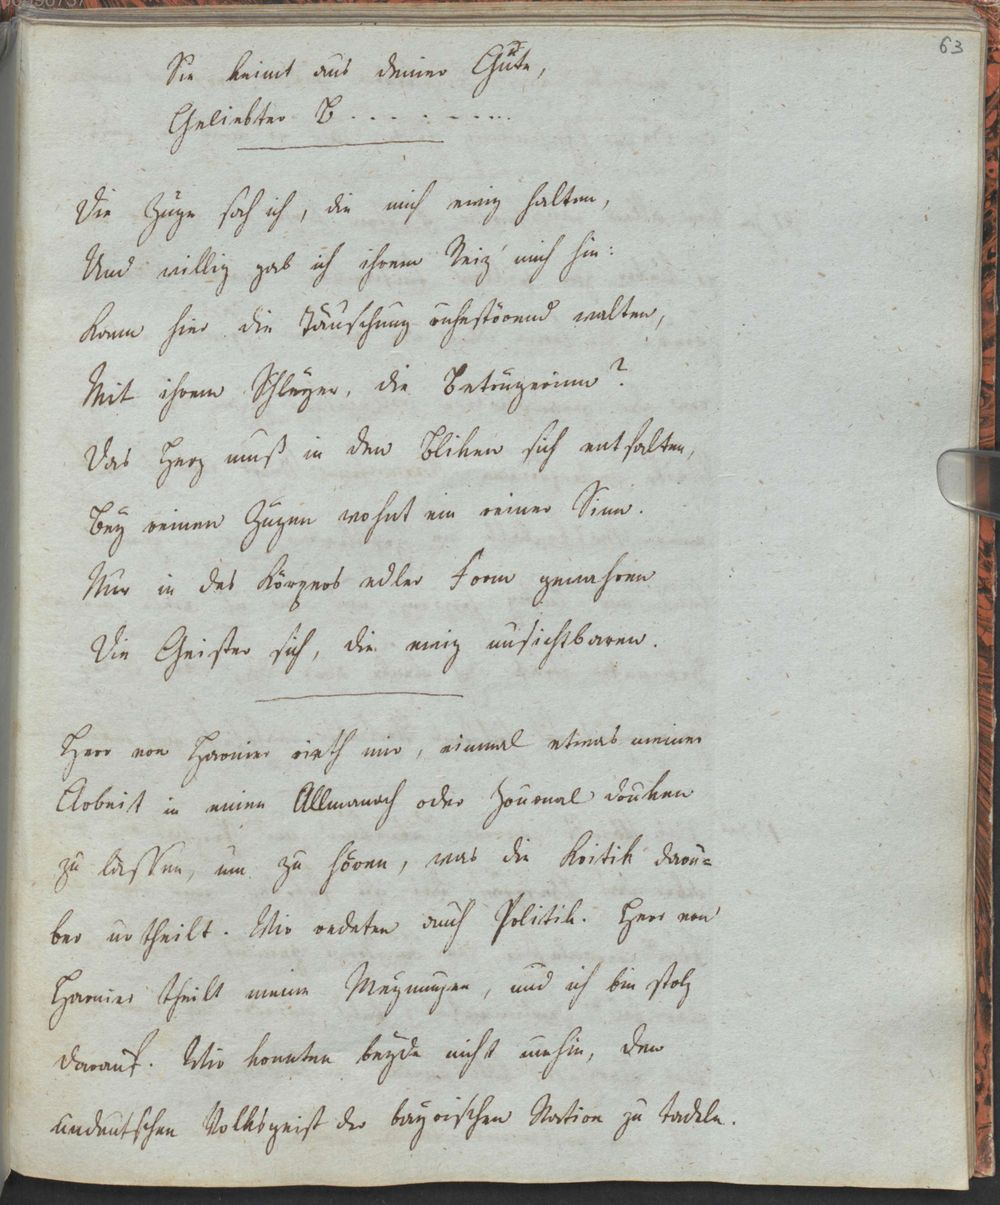 63
Sie keimt aus deiner Güte,
Geliebter B . . . . . . . . .
Die Züge sah ich, die mich ewig halten,
Und willig gab ich ihrem Reiz' mich hin:
Kann hier die Täuschung ruhestörend walten,
Mit ihrem Schleyer, die Betrügerinn?
Das Herz muß in den Bliken sich entfalten,
Bey reinen Zügen wohnt ein reiner Sinn.
Nur in des Körpers edler Form gewahren
Die Geister sich, die ewig unsichtbaren.
Herr von Harnier rieth mir, einmal etwas meiner
Arbeit in einen Allmanach oder Journal druken
zu lassen, um zu hören, was die Kritik darü=
ber urtheilt. Wir redeten auch Politik. Herr von
Harnier theilt meine Meynungen, und ich bin stolz
darauf. Wir konnten beyde nicht umhin, den
undeutschen Volksgeist der bayrischen Nation zu tadeln.